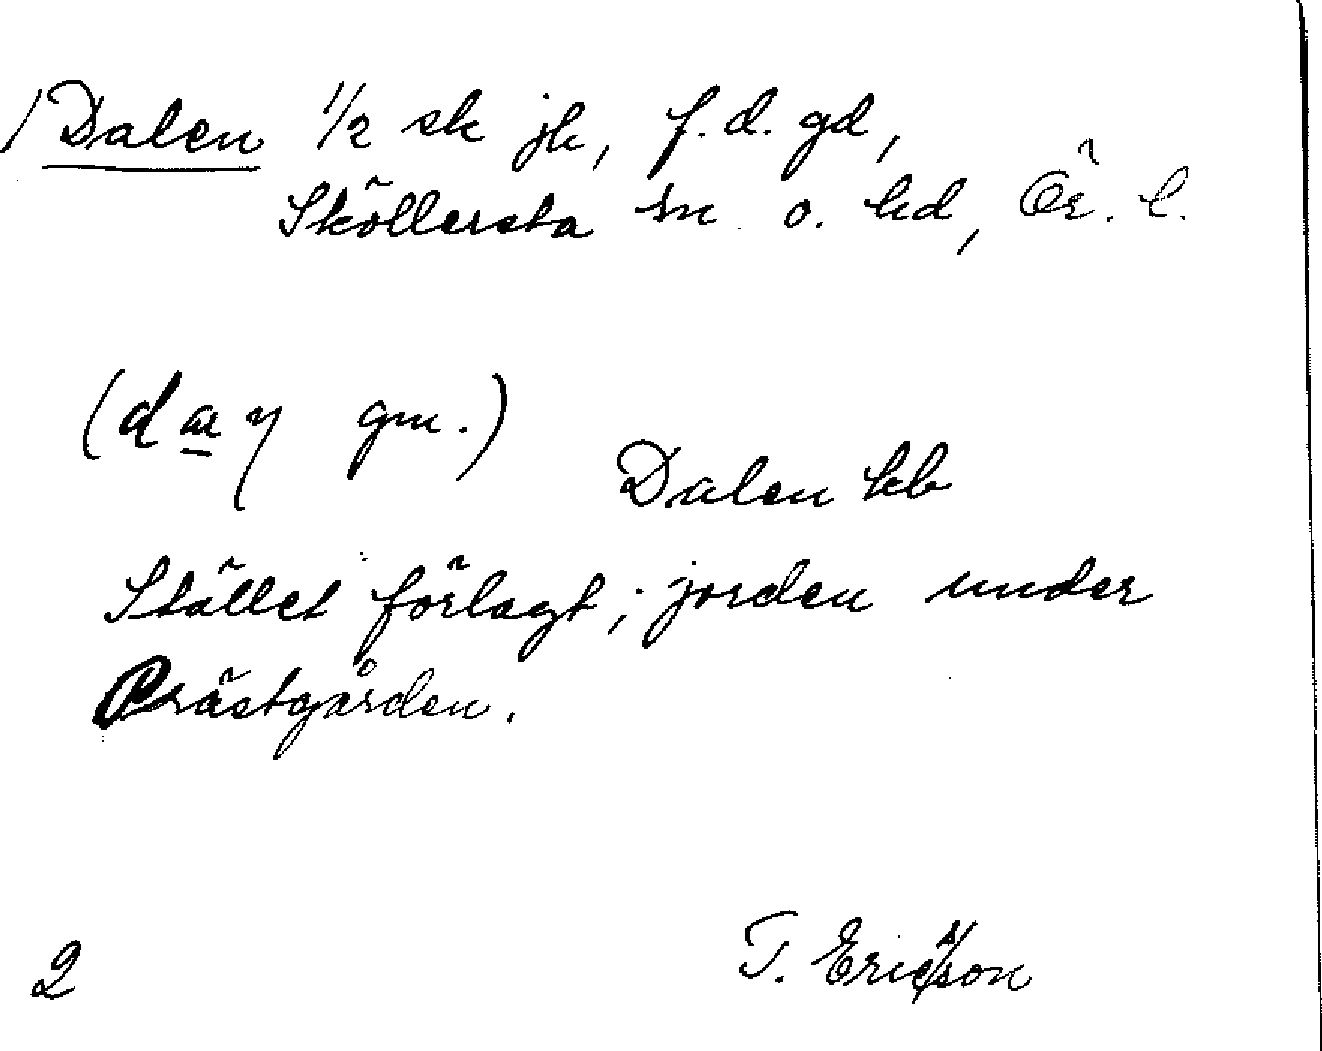 /Dalen 1/2 sk jk, f.d. gd,
Sköllersta sn o. hd, Ör. l.
gm.)
Dalen kb
Stället förlagt; jorden under
Prästgården.
2 T. Ericsson